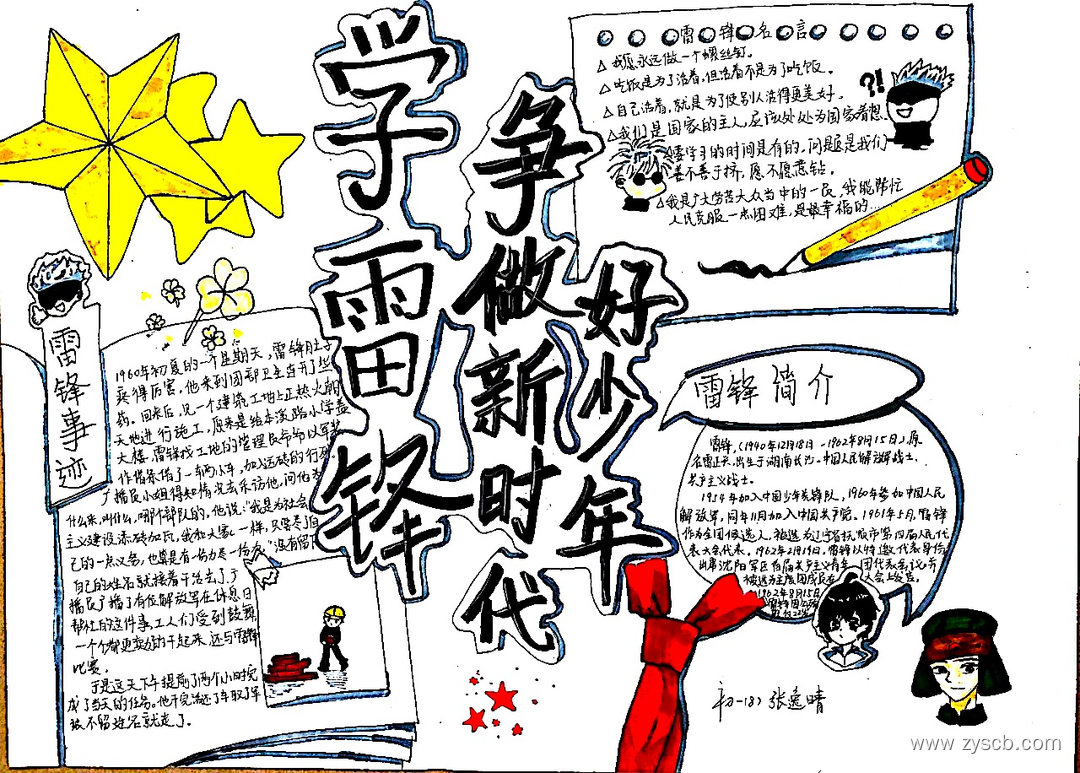 学雷锋
争做新时代
好少年
雷锋名言
△我愿永远做一个螺丝钉。
△吃饭是为了活着,但活着不是为了吃饭。
△自己活着,就是为了使别人活得更美好。
△我们是国家的主人,应该处处为国家着想。
要学习的时间是有的,问题是我们
善不善于挤,愿不愿意钻
△我是广大劳苦大众当中的一员,我能帮忙
人民克服一点困难,是最幸福的…
?!
雷锋事迹
1960年初夏的一个星期天,雷锋肚子
疼得厉害,他来到团部卫生连开了些
药。回来后,见一个建筑工地上正热火朝
天地进行施工,原来是给本溪路小学盖
大楼,雷锋
什么来,叫什么,哪个部队的,他说:“我是为社会
主义建设添砖加瓦,我和大家一样,只要尽了自
己的一点义务,也算是有一份光发一份
自己的姓名就接着干活去了,广
播
帮
一个个都更 干起来,还与雷锋
比赛。
于是这天下午提前了两个小时完
成了当天的任务。他
张不留姓名就走了。
雷锋简介
雷锋,(1940年12月18日-1962年8月15日)原
名雷正兴,出生于湖南长沙,中国人民解放军战士、
共产主义战士。
1954年加入中国少年先锋队,1960年参加中国人民
解放军,同年11月加入中国共产党。1961年5月,雷锋
作为全团候选人,被选为辽宁省抚顺市第四届人民代
表大会代表。1962年2月19日,雷锋以特邀代表身份
出席沈阳军区首届共产主义青年团代表会议,并
被选为主席团成员在大会上发言。
1962年8月15日
初一(8) 张逸晴
www.zyscb.com